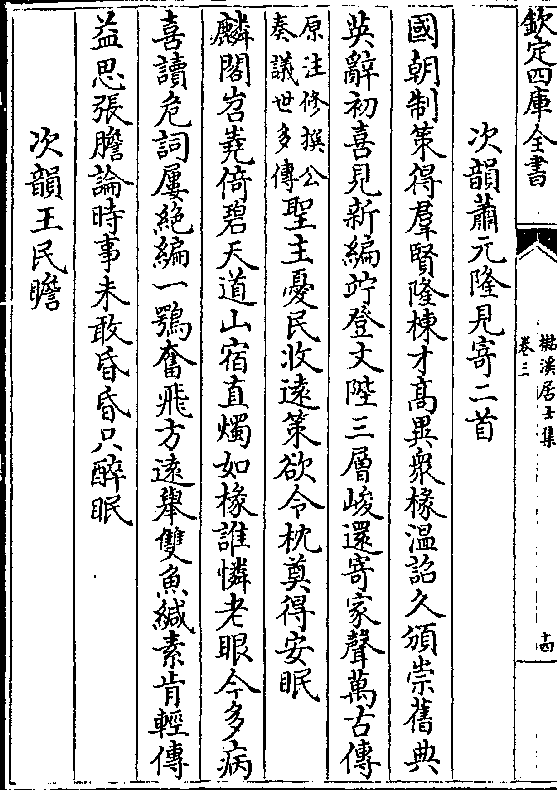 欽定四庫全書
檆溪居士集
卷三
十四
次韻蕭元隆見寄二首
國朝制策得羣賢隆棟才髙異衆椽温詔久頒崇舊典
英辭初喜見新編竚登文陛三層峻還寄家聲萬古傳
原注修撰公
奏議世多傳
聖主憂民收遠策欲令枕奠得安眠
麟閣岧嶤倚碧天道山宿直燭如椽誰憐老眼今多病
喜讀危詞屢絶編一鶚奮飛方遠舉雙魚緘素肯輕傳
益思張膽論時事未敢昏昏只醉眠
次韻王民瞻